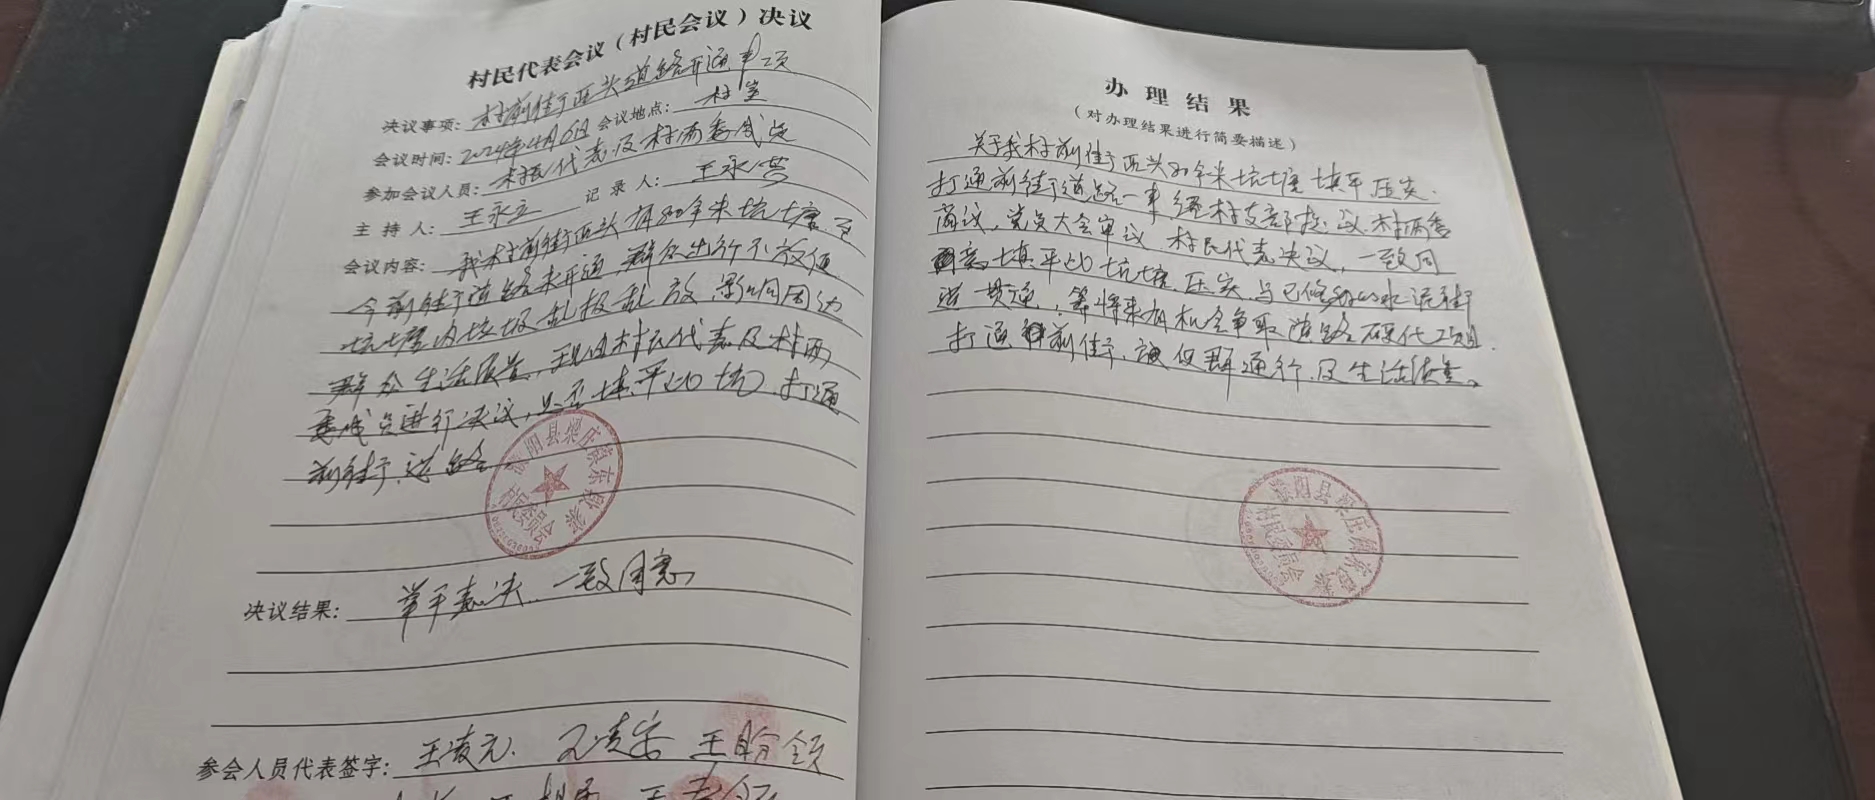 村民代表会议（村民会议）决议
决议事项：村前街西头道路开通事项
会议时间：2024年4月6日 会议地点：村室
参加会议人员：村民代表及村两委成员
主持人：王永立 记录人：王永营
会议内容：我村前街西头有80余米坑塘，至
今前街道路未开通，群众出行不放便
坑塘内垃圾乱扔乱放，影响周边
群众生活质量，现由村民代表及村两
委成员进行决议，是否填平此坑，打通
前街道路
决议结果：举手表决，一致同意
参会人员代表签字：王凌元
办理结果
（对办理结果进行简要描述）
关于我村前街西头80余米坑塘填平压实，
打通前街道路一事经村支部提议，村两委
商议，党员大会审议，村民代表决议，一致同
意填平此坑塘压实，与已修好的水泥街
道贯通，等将来有机会争取道路硬化工程，
打通前街，通行，及生活质量。